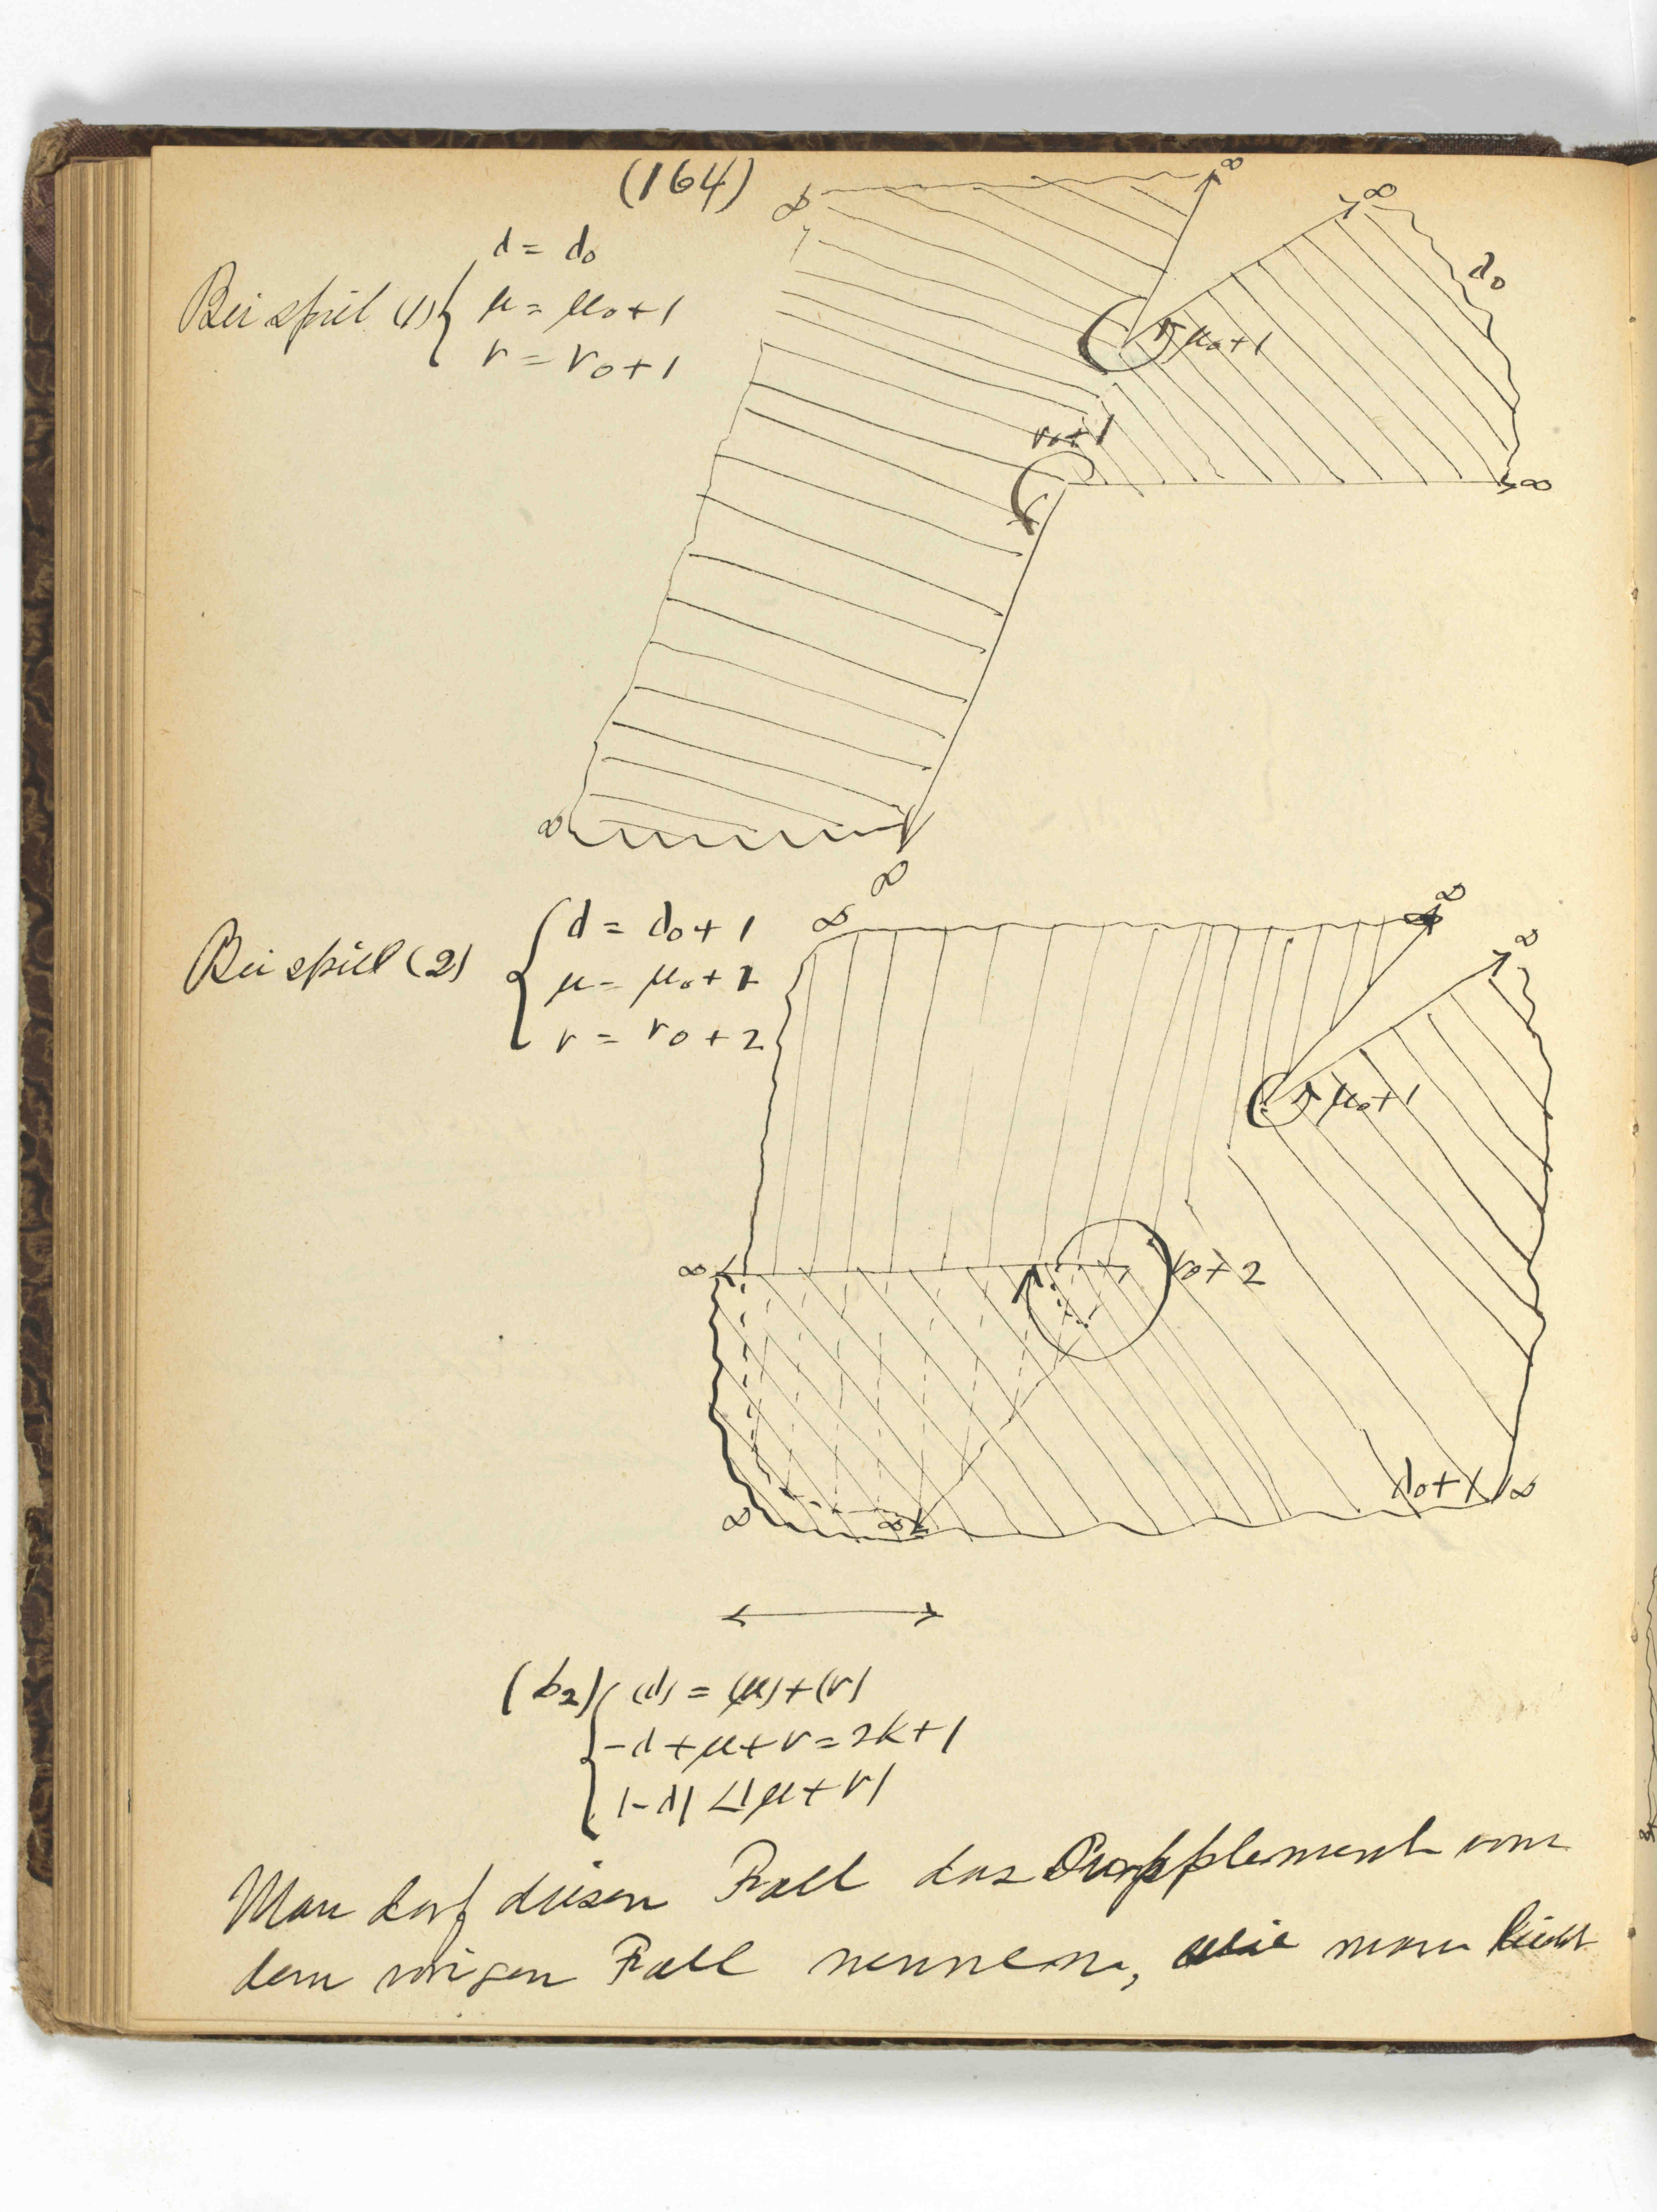 (164)
∞ ∞ ∞
λ = λ₀
Beispiel (1) { μ = μ₀+1
ν = ν₀+1
λ₀
μ₀+1
ν₀+1
∞
∞
∞
∞ ∞
Beispiel (2) { λ = λ₀+1
μ = μ₀+1
ν = ν₀+2
∞
μ₀+1
∞ ν₀+2
λ₀+1 ∞
∞ ∞
(b₂) { (λ) = (μ)+(ν)
-λ+μ+ν=2k+1
|-λ| <|μ+ν|
Man darf diesen Fall das Supplement von
dem vorigen Fall nennen, wie man leicht